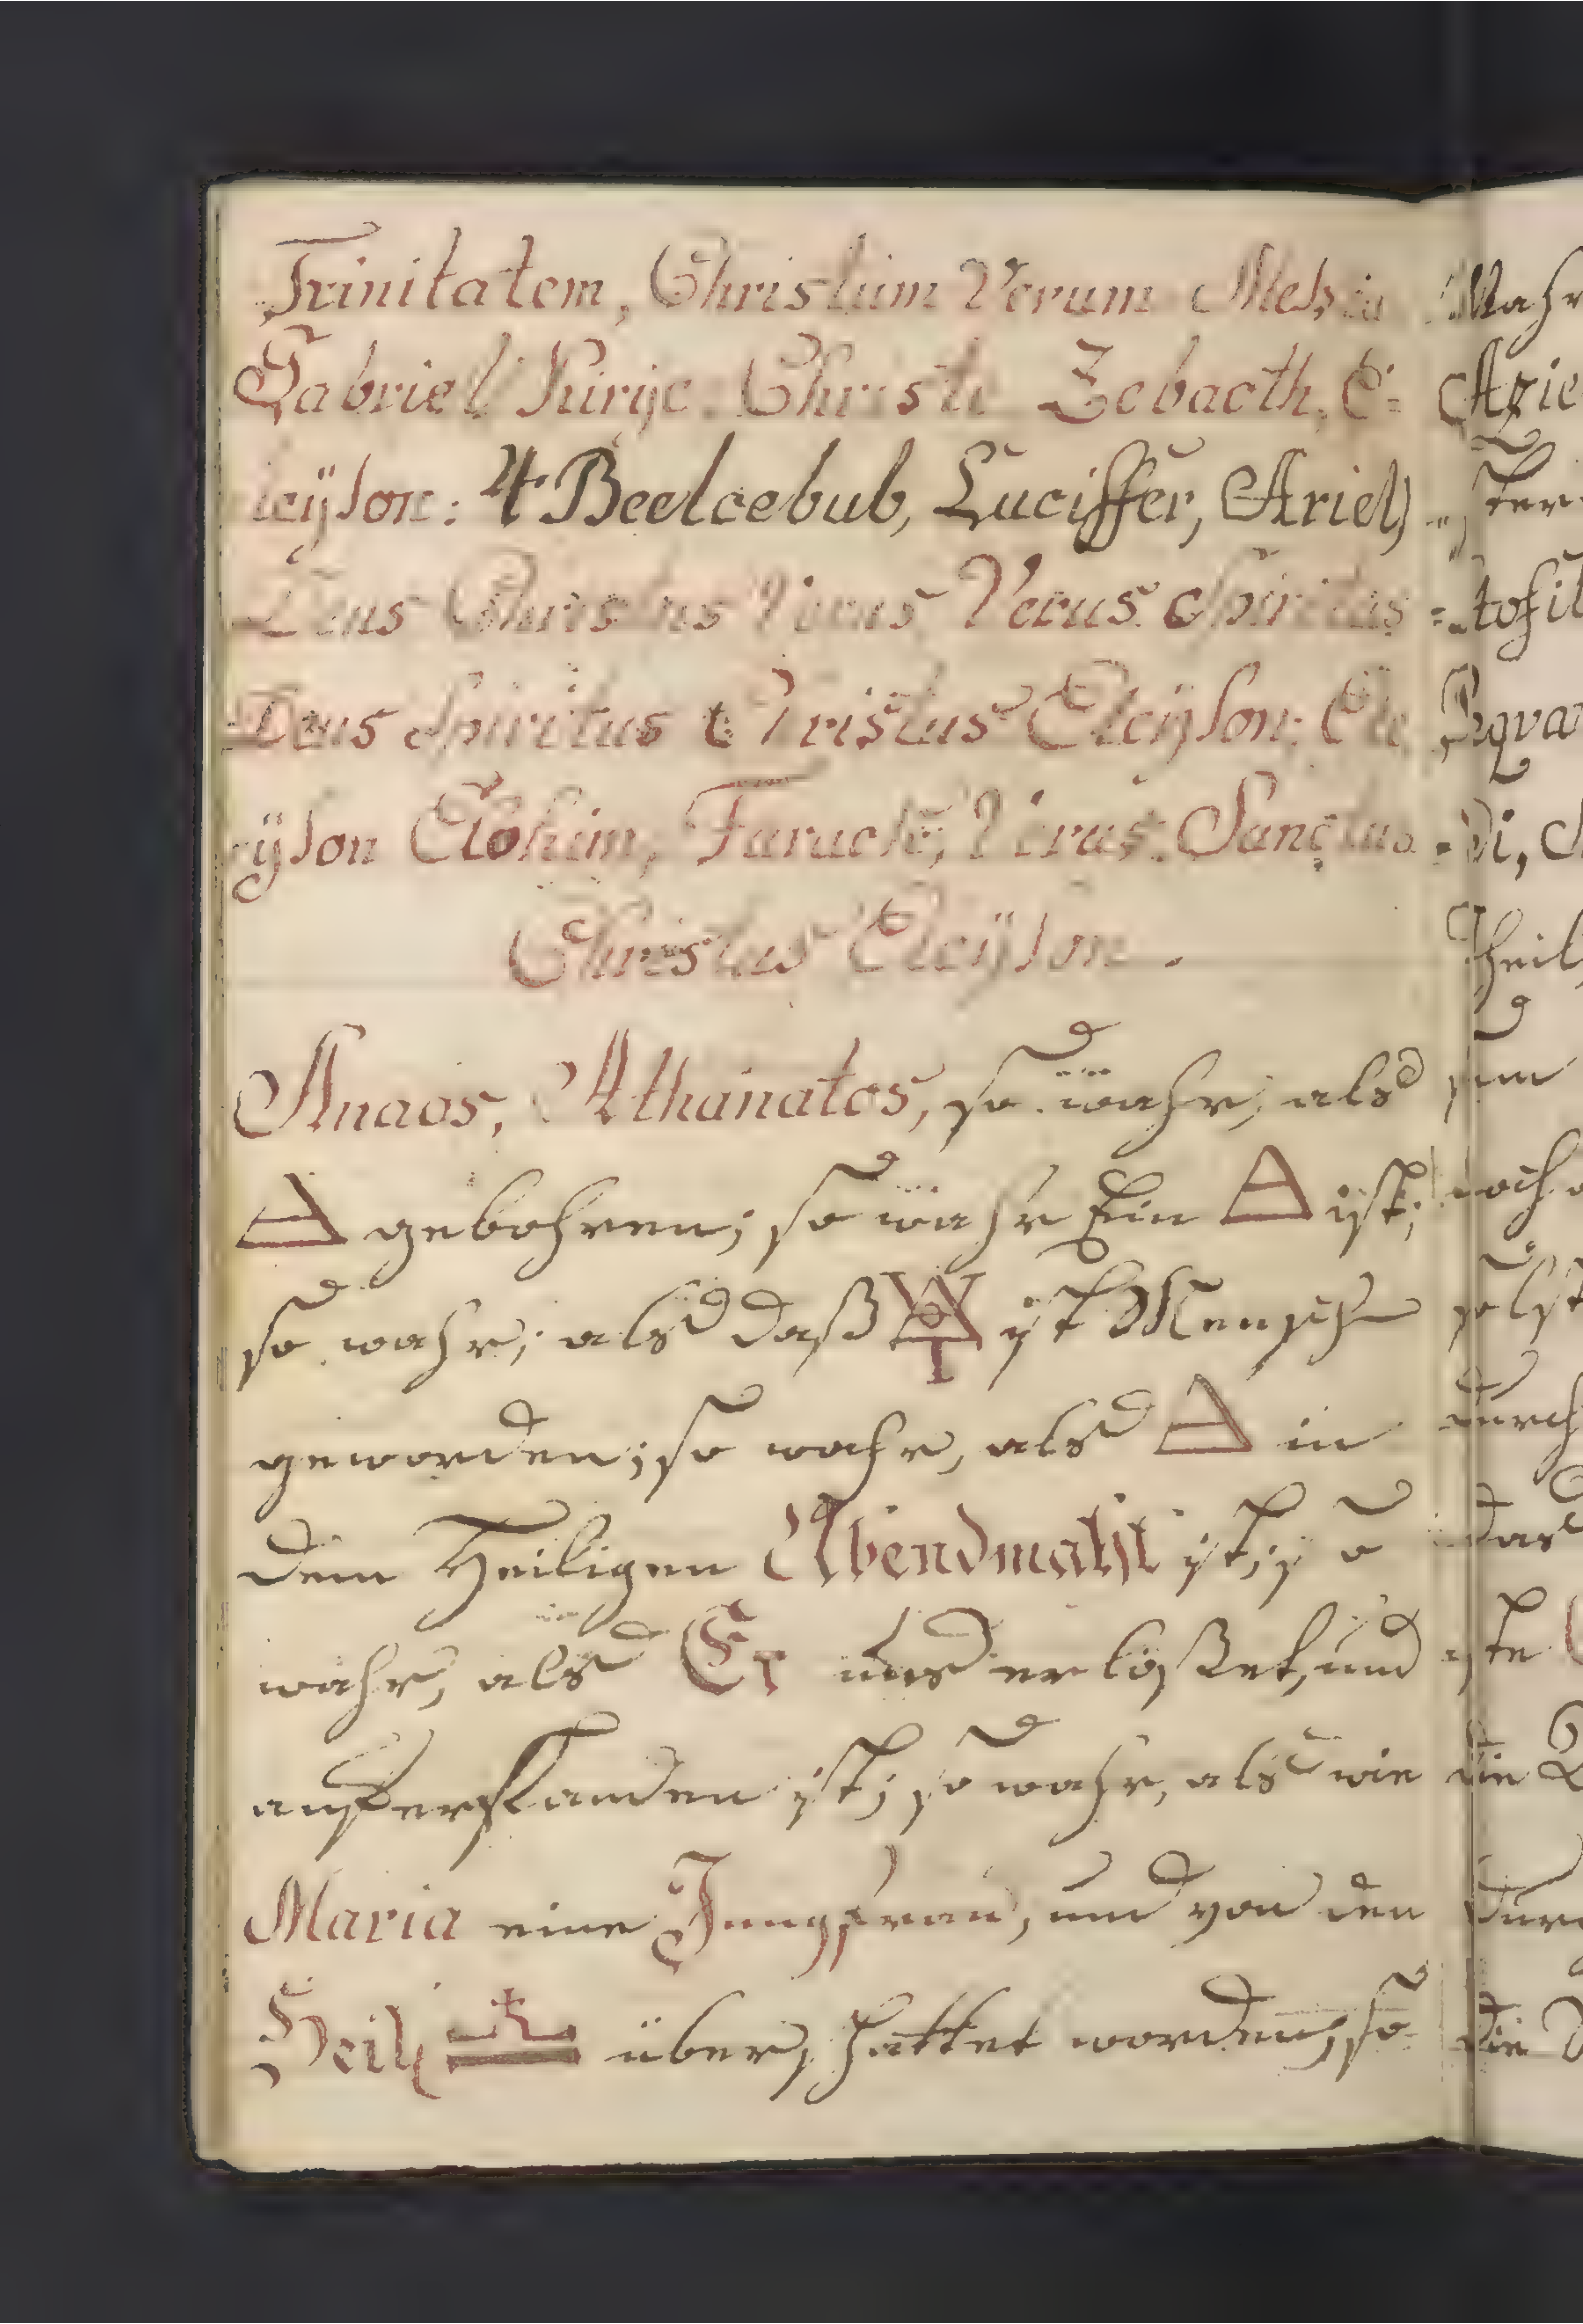 Trinitatem, Christum Verum Meßia
Gabriel Kirije. Christi Zebaoth, E-
leÿson: 4. Beelcebub, Luciffer, Ariel,
Deus Christus Verus Spiritus
Deus Spiritus Christus Eleÿson. Ele
ÿson Elohim, Verus. Sanctus
Christus Eleÿson.
Anaos, Athanatos, so wahr, als
gebohren; so wahr Ein ist;
so wahr; als daß ist Mensch
geworden; so wahr, als in
dem Heiligen Abendmahl ist; so
wahr, als Er uns erlößet, und
aufferstanden ist; so wahr, als wie
Maria eine Jungfrau, und von den
Heil. über, hattet worden; so